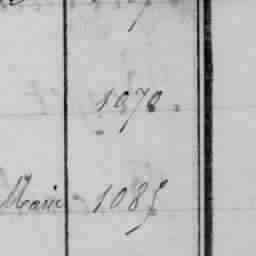 1070.
Marie 1085